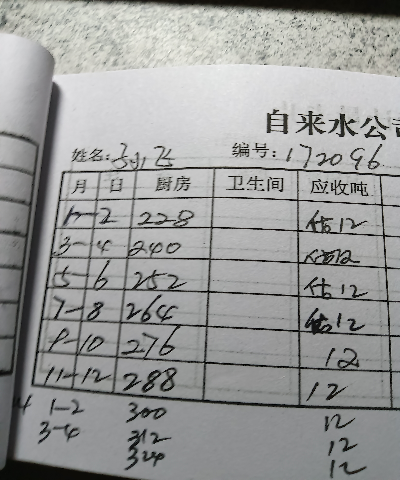 自来水公
姓名: 编号:172096
月 日 厨房 卫生间 应收吨
1-2 228 估12
3-4 240 估12
5-6 252 估12
7-8 264 估12
9-10 276 12
11-12 288 12
1-2 300 12
3-4 312 12
324 12